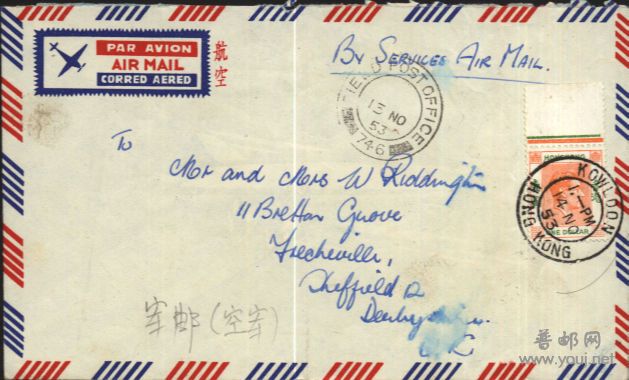 PAR AVION
AIR MAIL
CORREO AEREO
航空
By Services Air Mail.
FIELD POST OFFICE
13 NO
53
746
HONG KONG
ONE DOLLAR
KOWLOON
1-PM
14 NO
53
HONG KONG
To
Mr and Mrs W Riddington
11 Bretton Grove
Frecheville,
Sheffield 12
Derbyshire.
U.K
军邮(空军)
普邮网
www.youj.net